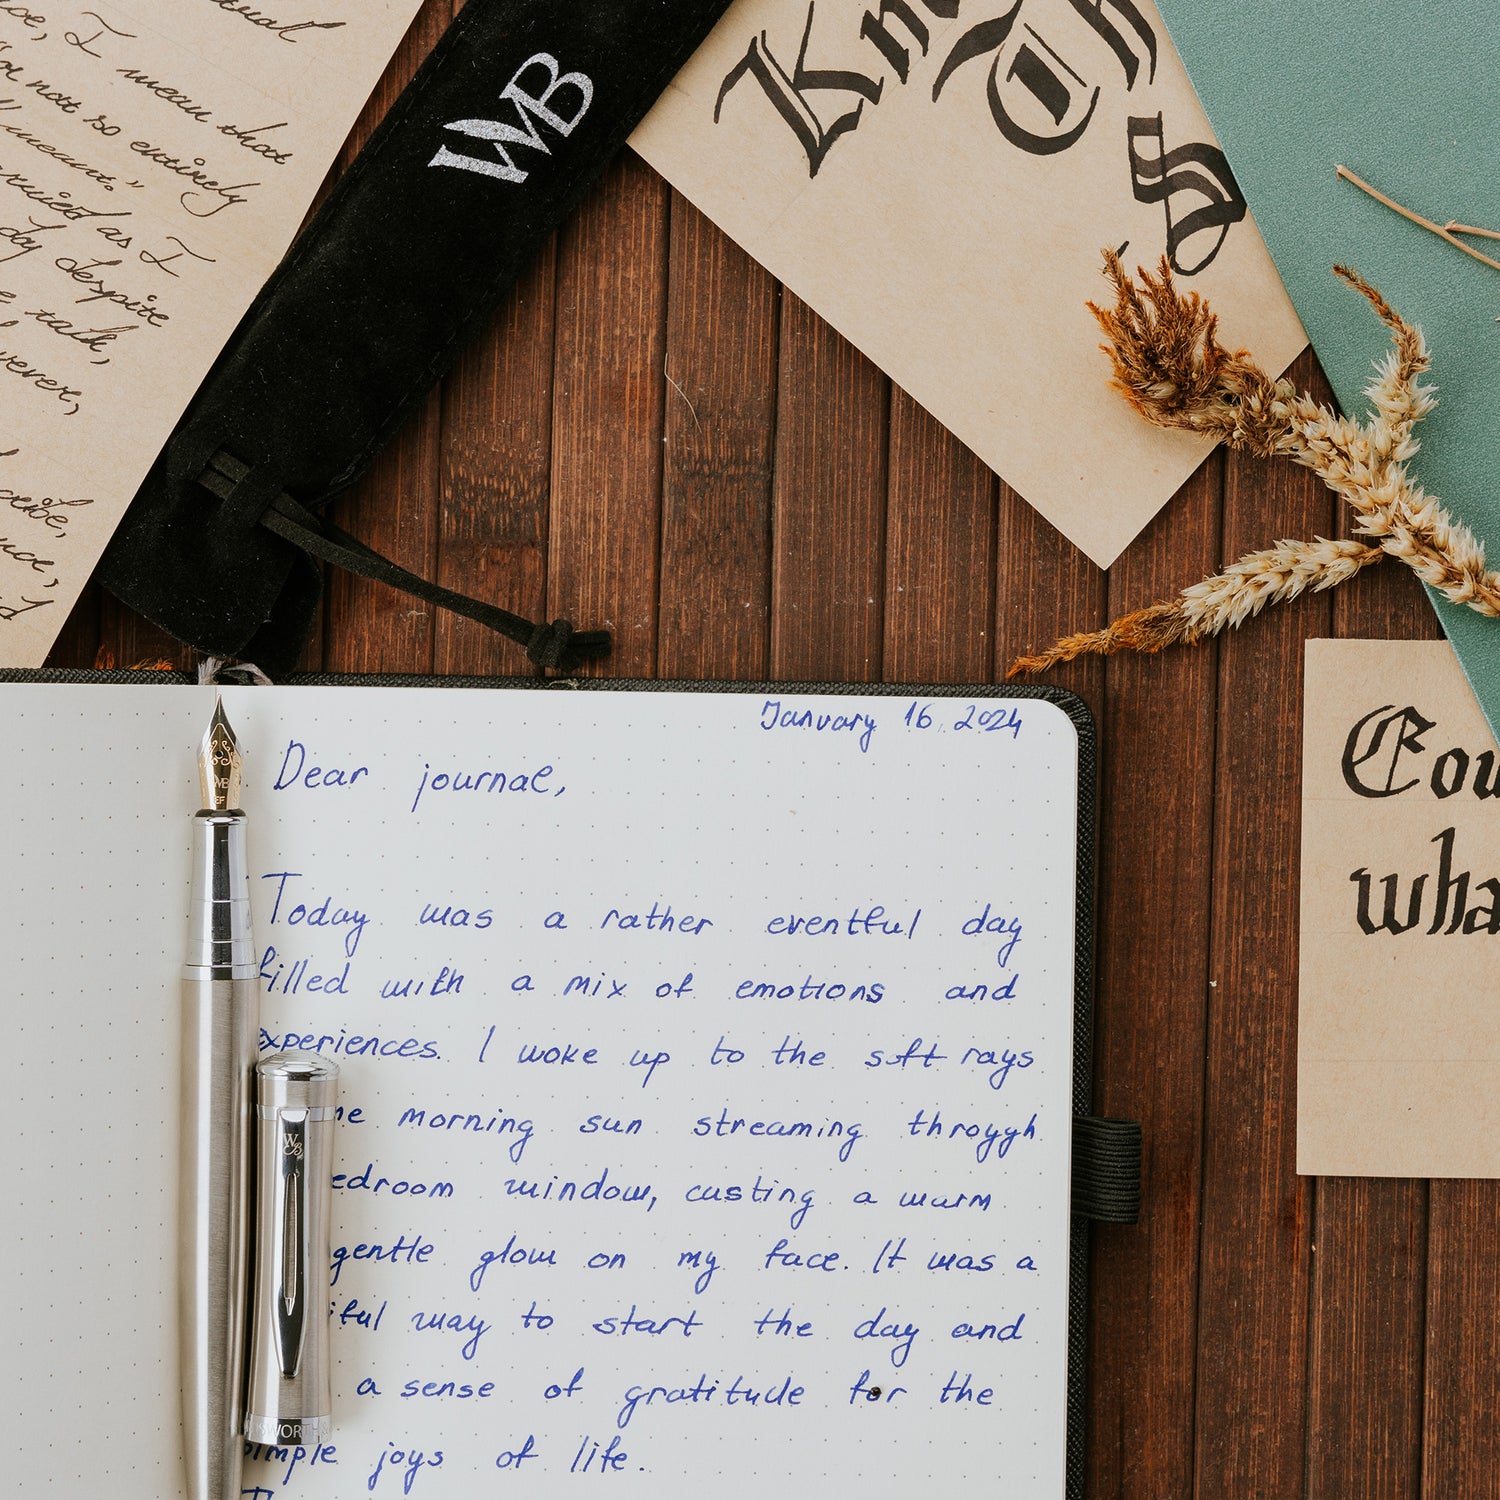 I mean that
not so entirely
meant."
as I
day despite
talk,
WB
Kn
Th
S
January 16, 2024
Dear journal,
Today was a rather eventful day
filled with a mix of emotions and
experiences. I woke up to the soft rays
morning sun streaming throygh
window, casting a warm
gentle glow on my face. It was a
way to start the day and
a sense of gratitude for the
simple joys of life.
WB
EF
WB
WORTH
Cou
wha